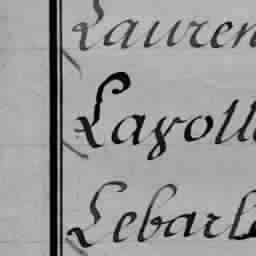 Lauren
Layoll
Lebarb